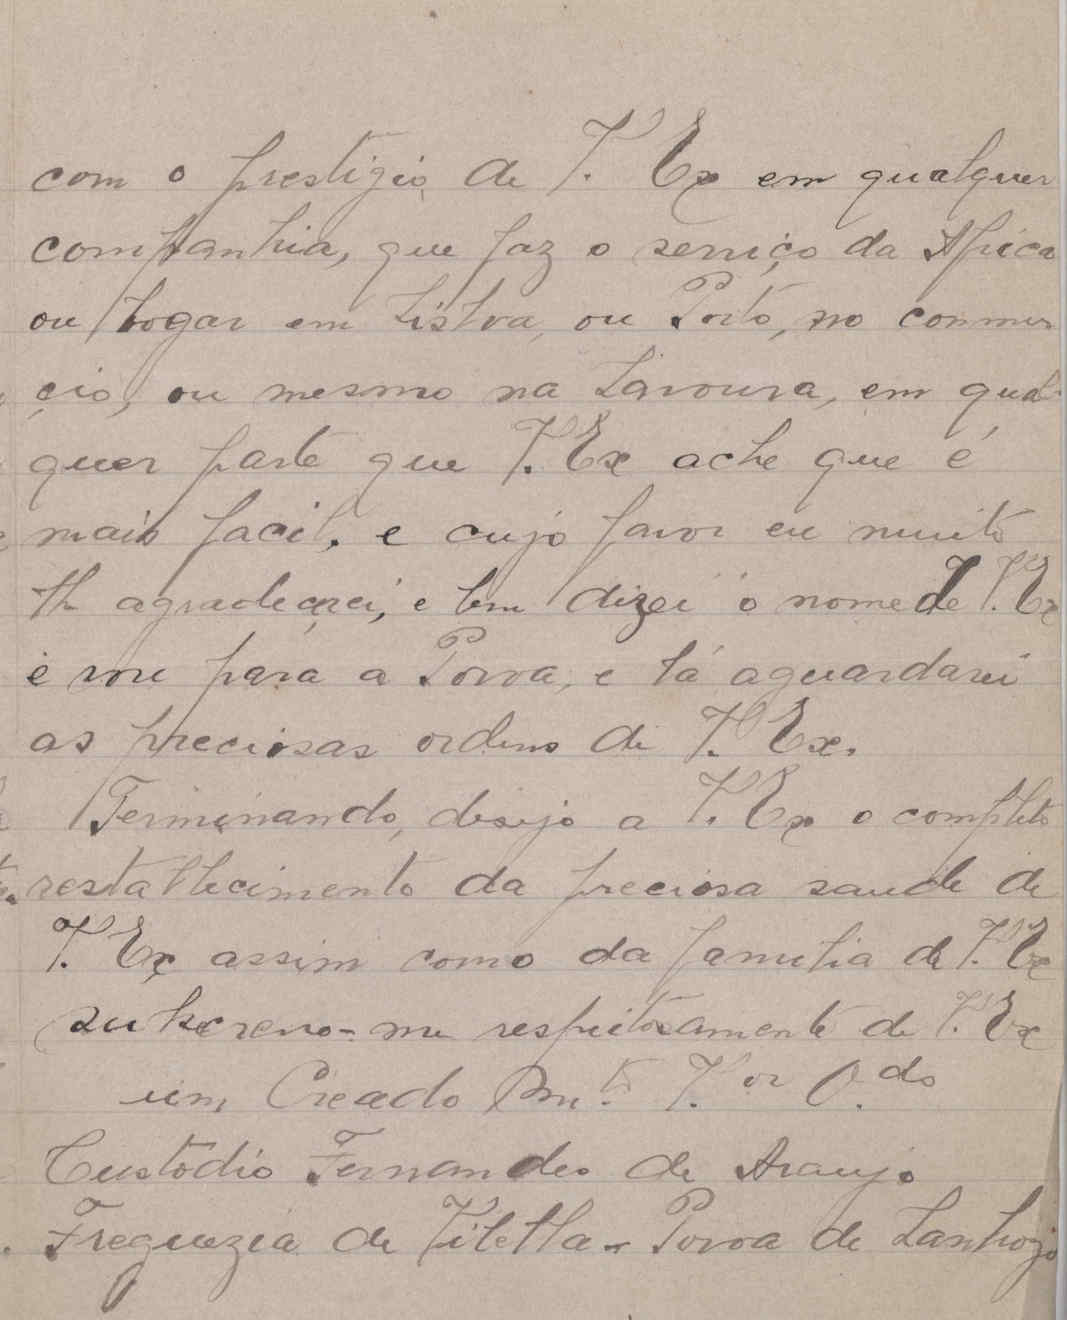 com o prestigio de V. Ex em qualquer
companhia, que faz o serviço da Africa
ou logar em Lisboa, ou Porto, no commer
cio, ou mesmo na Lavoura, em qual
quer parte que V. Ex ache que é
mais facil, e cujo favor eu muito
lh agradecerei, e bem dizei o nome de V. Ex
e vou para a Povoa, e lá aguardarei
as preciosas ordens de V. Ex.
Terminando, desejo a V. Ex o completo
restabllecimento da preciosa saude de
V. Ex assim como da familia de V. Ex
subscrevo-me respeitosamente de V. Ex
um Creado Mu.to V.or O.do
Custodio Fernandes de Araujo
Freguezia de Vilella - Povoa de Lanhozo